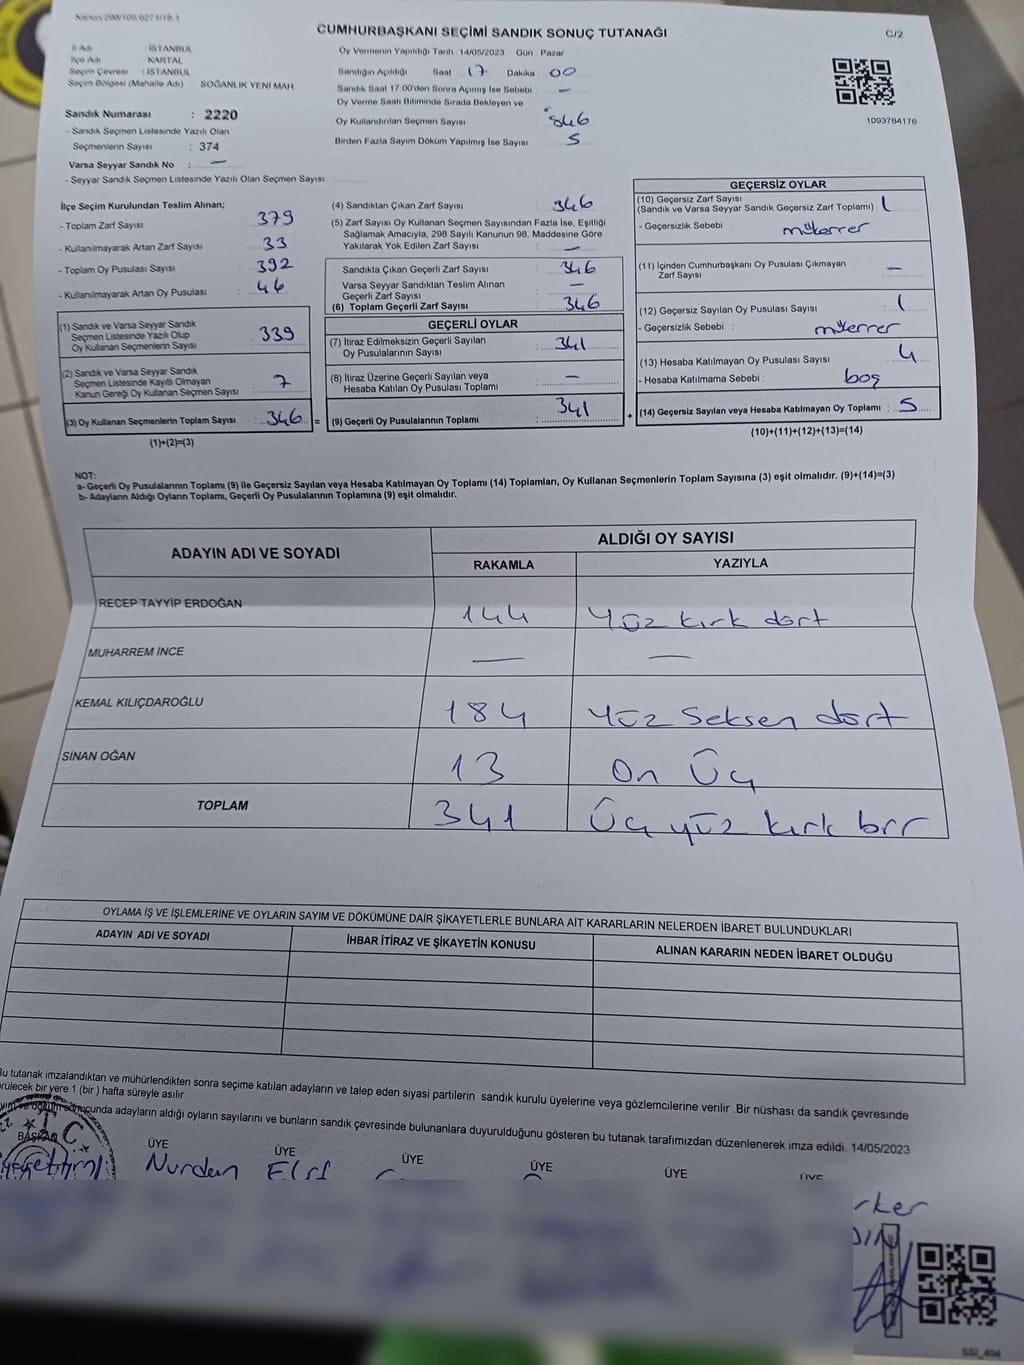 Kanun 298/105,6271/18-1
CUMHURBAŞKANI SEÇİMİ SANDIK SONUÇ TUTANAĞI
C/2
İl Adı : İSTANBUL
İlçe Adı : KARTAL
Seçim Çevresi : İSTANBUL
Seçim Bölgesi (Mahalle Adı) : SOĞANLIK YENİ MAH.
Oy Vermenin Yapıldığı Tarih : 14/05/2023 Gün : Pazar
Sandığın Açıldığı Saat 17 Dakika : 00
Sandık Saat 17:00'den Sonra Açımış İse Sebebi : —
Oy Verme Saati Bitiminde Sırada Bekleyen ve
Oy Kullandırılan Seçmen Sayısı : 346
Birden Fazla Sayım Döküm Yapılmış İse Sayısı : 5
1093784176
Sandık Numarası : 2220
- Sandık Seçmen Listesinde Yazılı Olan
Seçmenlerin Sayısı : 374
Varsa Seyyar Sandık No : —
- Seyyar Sandık Seçmen Listesinde Yazılı Olan Seçmen Sayısı:
İlçe Seçim Kurulundan Teslim Alınan;
- Toplam Zarf Sayısı : 379
- Kullanılmayarak Artan Zarf Sayısı : 33
- Toplam Oy Pusulası Sayısı : 392
- Kullanılmayarak Artan Oy Pusulası : 46
(1) Sandık ve Varsa Seyyar Sandık
Seçmen Listesinde Yazılı Olup
Oy Kullanan Seçmenlerin Sayısı : 339
(2) Sandık ve Varsa Seyyar Sandık
Seçmen Listesinde Kayıtlı Olmayan
Kanun Gereği Oy Kullanan Seçmen Sayısı : 7
(3) Oy Kullanan Seçmenlerin Toplam Sayısı : 346 =
(1)+(2)=(3)
(4) Sandıktan Çıkan Zarf Sayısı : 346
(5) Zarf Sayısı Oy Kullanan Seçmen Sayısından Fazla İse, Eşitliği
Sağlamak Amacıyla, 298 Sayılı Kanunun 98. Maddesine Göre
Yakılarak Yok Edilen Zarf Sayısı : —
Sandıkta Çıkan Geçerli Zarf Sayısı : 346
Varsa Seyyar Sandıktan Teslim Alınan
Geçerli Zarf Sayısı : —
(6) Toplam Geçerli Zarf Sayısı : 346
GEÇERLİ OYLAR
(7) İtiraz Edilmeksizin Geçerli Sayılan
Oy Pusulalarının Sayısı : 341
(8) İtiraz Üzerine Geçerli Sayılan veya
Hesaba Katılan Oy Pusulası Toplamı : —
(9) Geçerli Oy Pusulalarının Toplamı : 341 +
GEÇERSİZ OYLAR
(10) Geçersiz Zarf Sayısı
(Sandık ve Varsa Seyyar Sandık Geçersiz Zarf Toplamı) : 1
- Geçersizlik Sebebi : mükerrer
(11) İçinden Cumhurbaşkanı Oy Pusulası Çıkmayan
Zarf Sayısı : —
(12) Geçersiz Sayılan Oy Pusulası Sayısı : 1
- Geçersizlik Sebebi :
(13) Hesaba Katılmayan Oy Pusulası Sayısı : 4
- Hesaba Katılmama Sebebi : boş
(14) Geçersiz Sayılan veya Hesaba Katılmayan Oy Toplamı : 5
(10)+(11)+(12)+(13)=(14)
NOT:
a- Geçerli Oy Pusulalarının Toplamı (9) ile Geçersiz Sayılan veya Hesaba Katılmayan Oy Toplamı (14) Toplamları, Oy Kullanan Seçmenlerin Toplam Sayısına (3) eşit olmalıdır. (9)+(14)=(3)
b- Adayların Aldığı Oyların Toplamı, Geçerli Oy Pusulalarının Toplamına (9) eşit olmalıdır.
ADAYIN ADI VE SOYADI
ALDIĞI OY SAYISI
RAKAMLA YAZIYLA
RECEP TAYYİP ERDOĞAN 144 Yüz kırk dört
MUHARREM İNCE — —
KEMAL KILIÇDAROĞLU 184 Yüz Seksen dört
SİNAN OĞAN 13 On Üç
TOPLAM 341 Üç yüz kırk bir
OYLAMA İŞ VE İŞLEMLERİNE VE OYLARIN SAYIM VE DÖKÜMÜNE DAİR ŞİKAYETLERLE BUNLARA AİT KARARLARIN NELERDEN İBARET BULUNDUKLARI
ADAYIN ADI VE SOYADI İHBAR İTİRAZ VE ŞİKAYETİN KONUSU ALINAN KARARIN NEDEN İBARET OLDUĞU
Bu tutanak imzalandıktan ve mühürlendikten sonra seçime katılan adayların ve talep eden siyasi partilerin sandık kurulu üyelerine veya gözlemcilerine verilir .Bir nüshası da sandık çevresinde
görülecek bir yere 1 (bir ) hafta süreyle asılır.
Sayım ve döküm sonucunda adayların aldığı oyların sayılarını ve bunların sandık çevresinde bulunanlara duyurulduğunu gösteren bu tutanak tarafımızdan düzenlenerek imza edildi. 14/05/2023
T.C.
BAŞKAN ÜYE ÜYE ÜYE ÜYE ÜYE ÜYE
Nurdan Elif